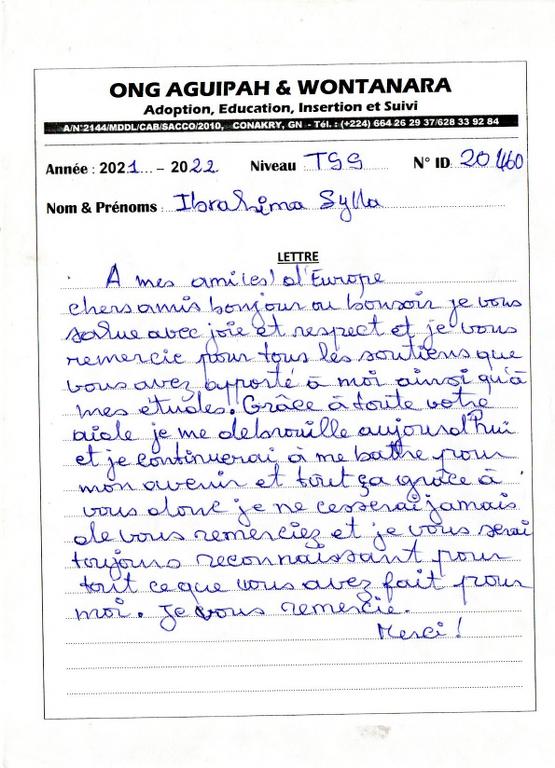 ONG AGUIPAH & WONTANARA
Adoption, Education, Insertion et Suivi
A/N°2144/MDDL/CAB/SACCO/2010, CONAKRY, GN - Tél. : (+224) 664 26 29 37/628 33 92 84
Année : 2021... - 2022 Niveau TSS N° ID 20460
Nom & Prénoms : Ibrahima Sylla
LETTRE
A mes ami(es) d'Europe
chers amis bonjour ou bonsoir je vous
salue avec joie et respect et je vous
remercie pour tous les soutiens que
vous avez apporté à moi ainsi qu'à
mes études. Grâce à toute votre
aide je me debrouille aujourd'hui
et je continuerai à me battre pour
mon avenir et tout ça grâce à
vous donc je ne cesserai jamais
de vous remerciez et je vous serai
toujours reconnaissant pour
tout ce que vous avez fait pour
moi. Je vous remercie.
Merci !